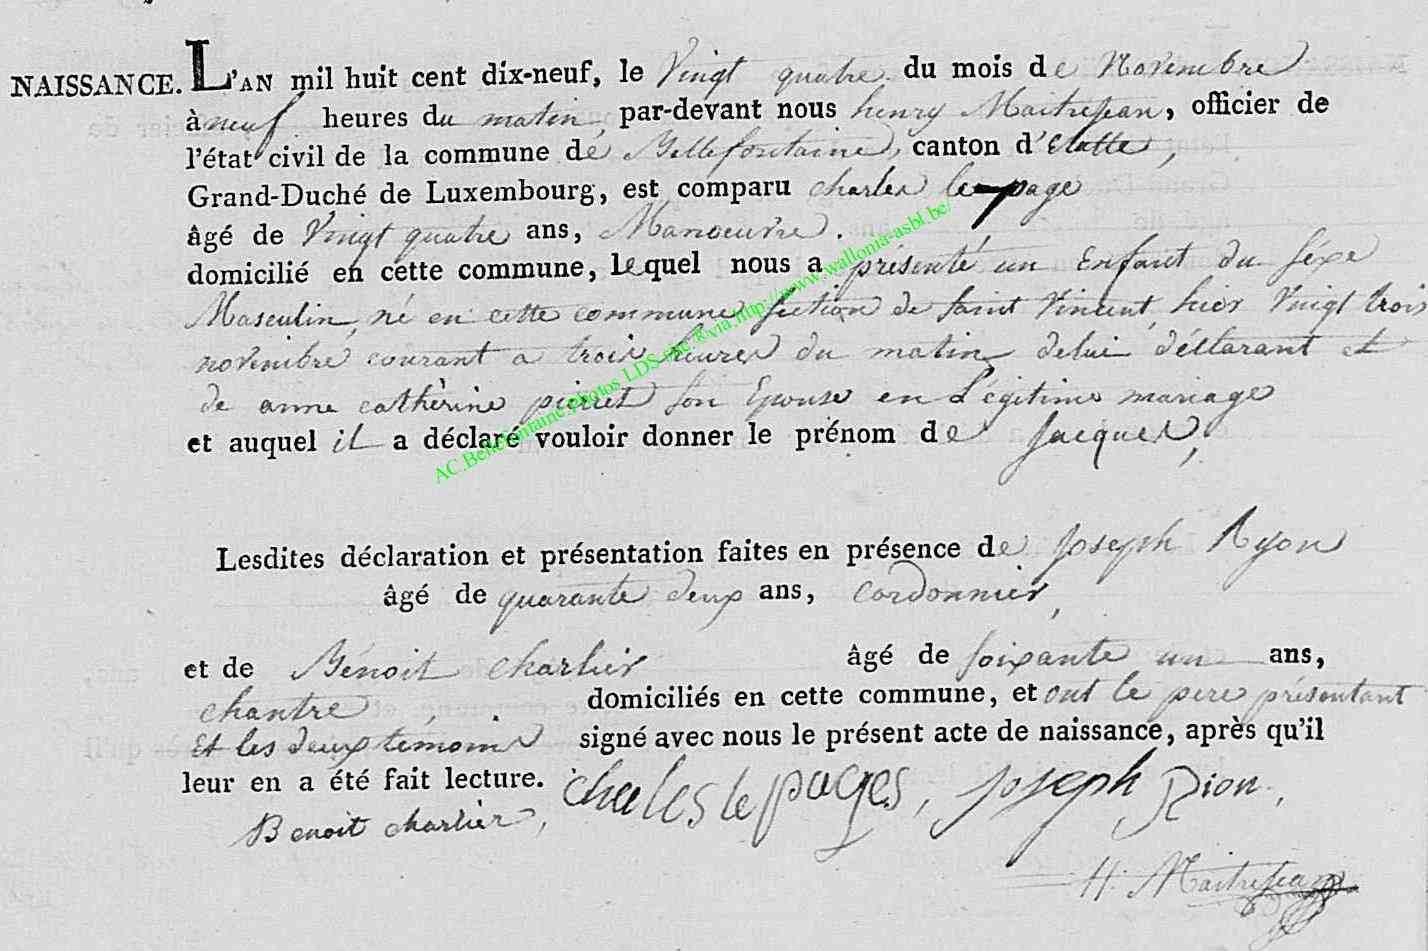 NAISSANCE. L'AN mil huit cent dix-neuf, le Vingt quatre du mois de Novembre
à neuf heures du matin, par-devant nous henry Maitrejean, officier de
l'état civil de la commune de Bellefontaine, canton d'Etalle,
Grand-Duché de Luxembourg, est comparu charles le page
âgé de Vingt quatre ans, Manoeuvre.
domicilié en cette commune, lequel nous a présenté un Enfant du séxe
Masculin, né en cette commune section de saint Vincent, hier Vingt trois
novembre courant a trois heures du matin de lui déclarant et
de anne cathèrine pierret son Epouse en Légitime mariage
et auquel il a déclaré vouloir donner le prénom de Jacques,
Lesdites déclaration et présentation faites en présence de Joseph Ryon
âgé de quarante deux ans, cordonnier,
et de Bénoit charlier âgé de soixante un ans,
chantre, domiciliés en cette commune, et ont le pere présentant
Et les deux temoins signé avec nous le présent acte de naissance, après qu'il
leur en a été fait lecture. chales le pages, Joseph Rion,
Benoit charlier,
H. Maitrejean
AC.Bellefontaine,photos LDS via http://www.wallonia-asbl.be/